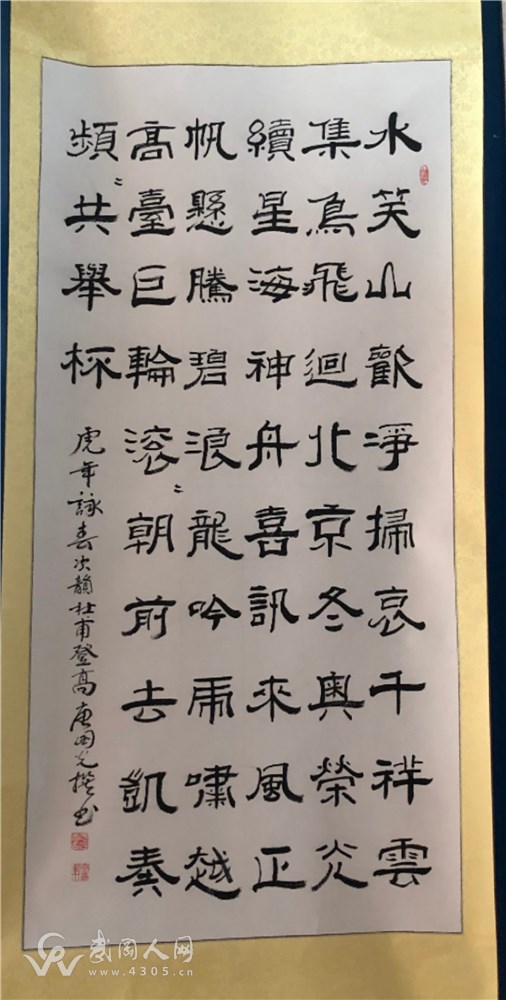 水笑山歡淨掃哀千祥雲
集鳥飛迴北京冬奧榮炎
續星海神舟喜訊來風正
帆懸騰碧浪龍吟虎嘯越
高臺巨輪滾〻朝前去凱奏
頻〻共舉杯
虎年詠春次韻杜甫登高 撰书
武冈人网
www.4305.cn